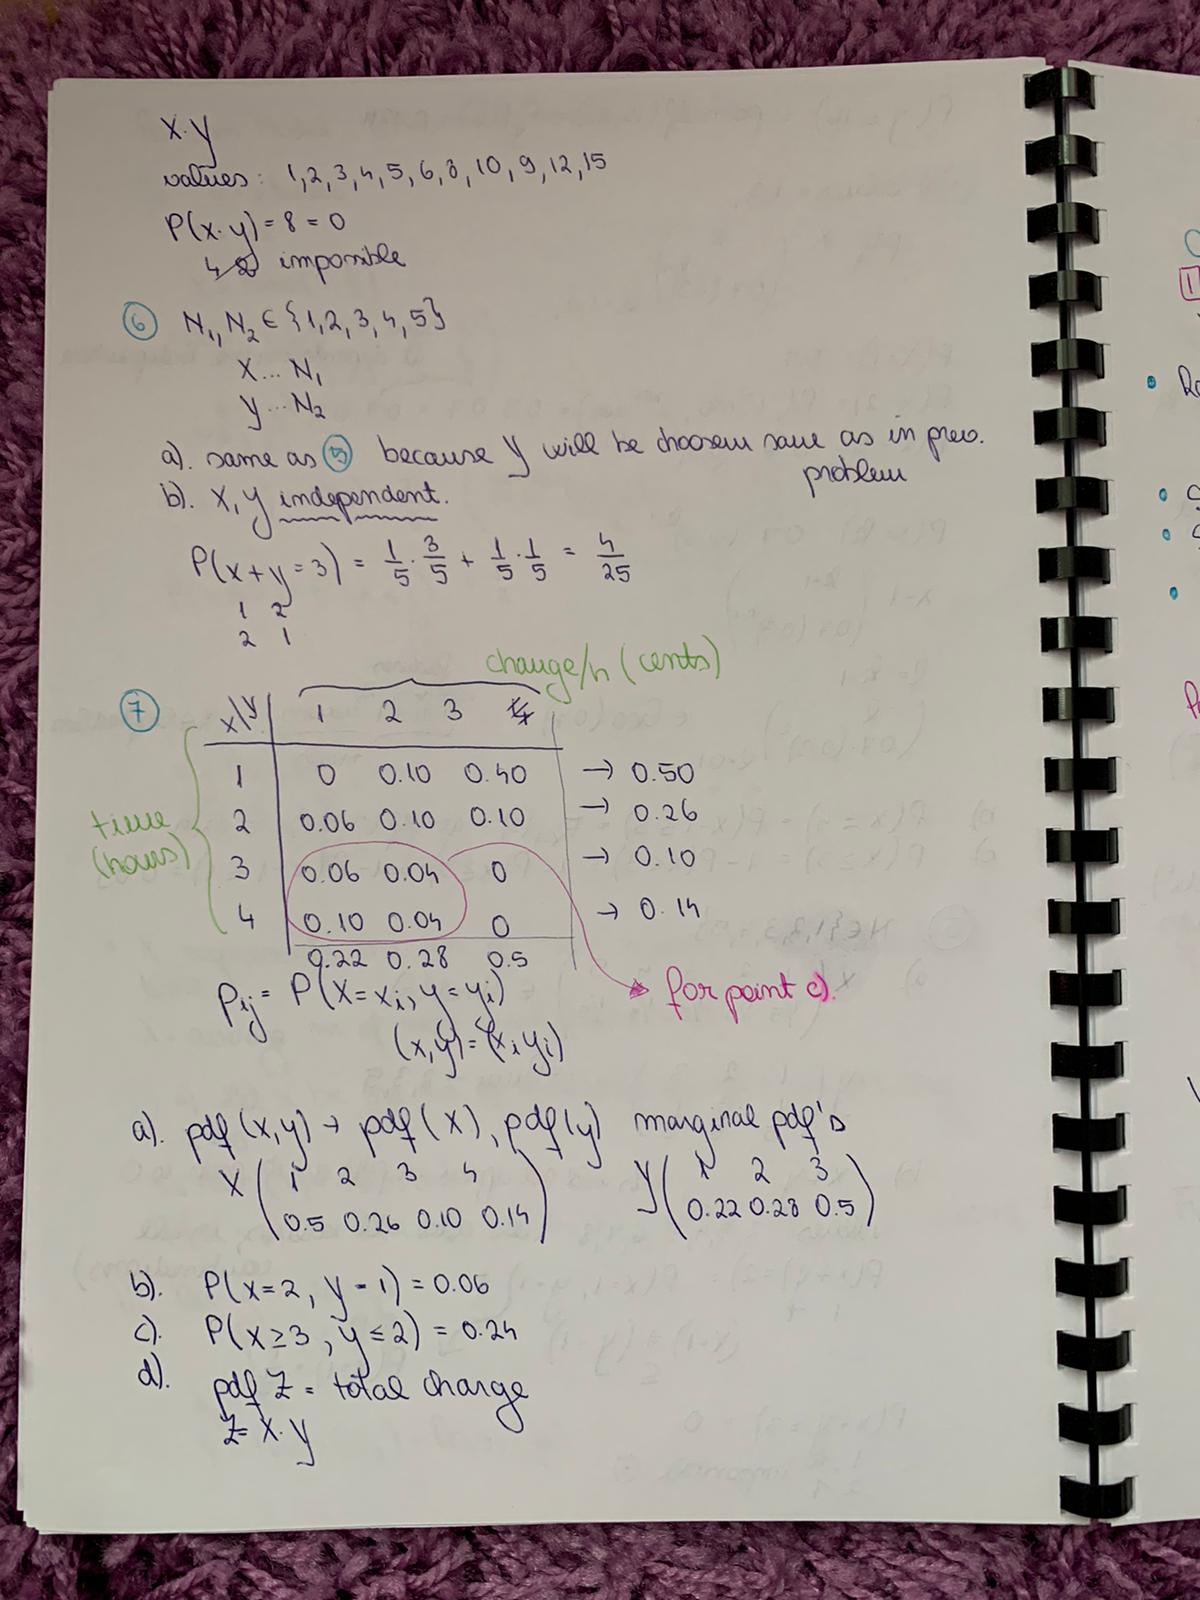 X·Y
values: 1,2,3,4,5,6,8,10,9,12,15
P(X·Y)=8=0
4 2 imposible
6 N₁,N₂∈{1,2,3,4,5}
X...N₁
Y...N₂
a). same as 5 because Y will be choosen same as in prev.
problem
b). X,Y independent.
P(X+Y=3) = 1/5 · 3/5 + 1/5 · 1/5 = 4/25
1 2
2 1
charge/h (cents)
7 X\Y 1 2 3
time (hours)
1 0 0.10 0.40 → 0.50
2 0.06 0.10 0.10 → 0.26
3 0.06 0.04 0 → 0.10
4 0.10 0.04 0 → 0.14
0.22 0.28 0.5
Pij = P(X=xi, Y=yj) for point c).
(X,Y)=(xi yi)
a). pdf(X,Y) → pdf(X), pdf(Y) marginal pdf's
X( 1 2 3 4 ) Y( 1 2 3 )
0.5 0.26 0.10 0.14 0.22 0.28 0.5
b). P(X=2, Y=1) = 0.06
c). P(X≥3, Y≤2) = 0.24
d). pdf Z = total charge
Z= X·Y